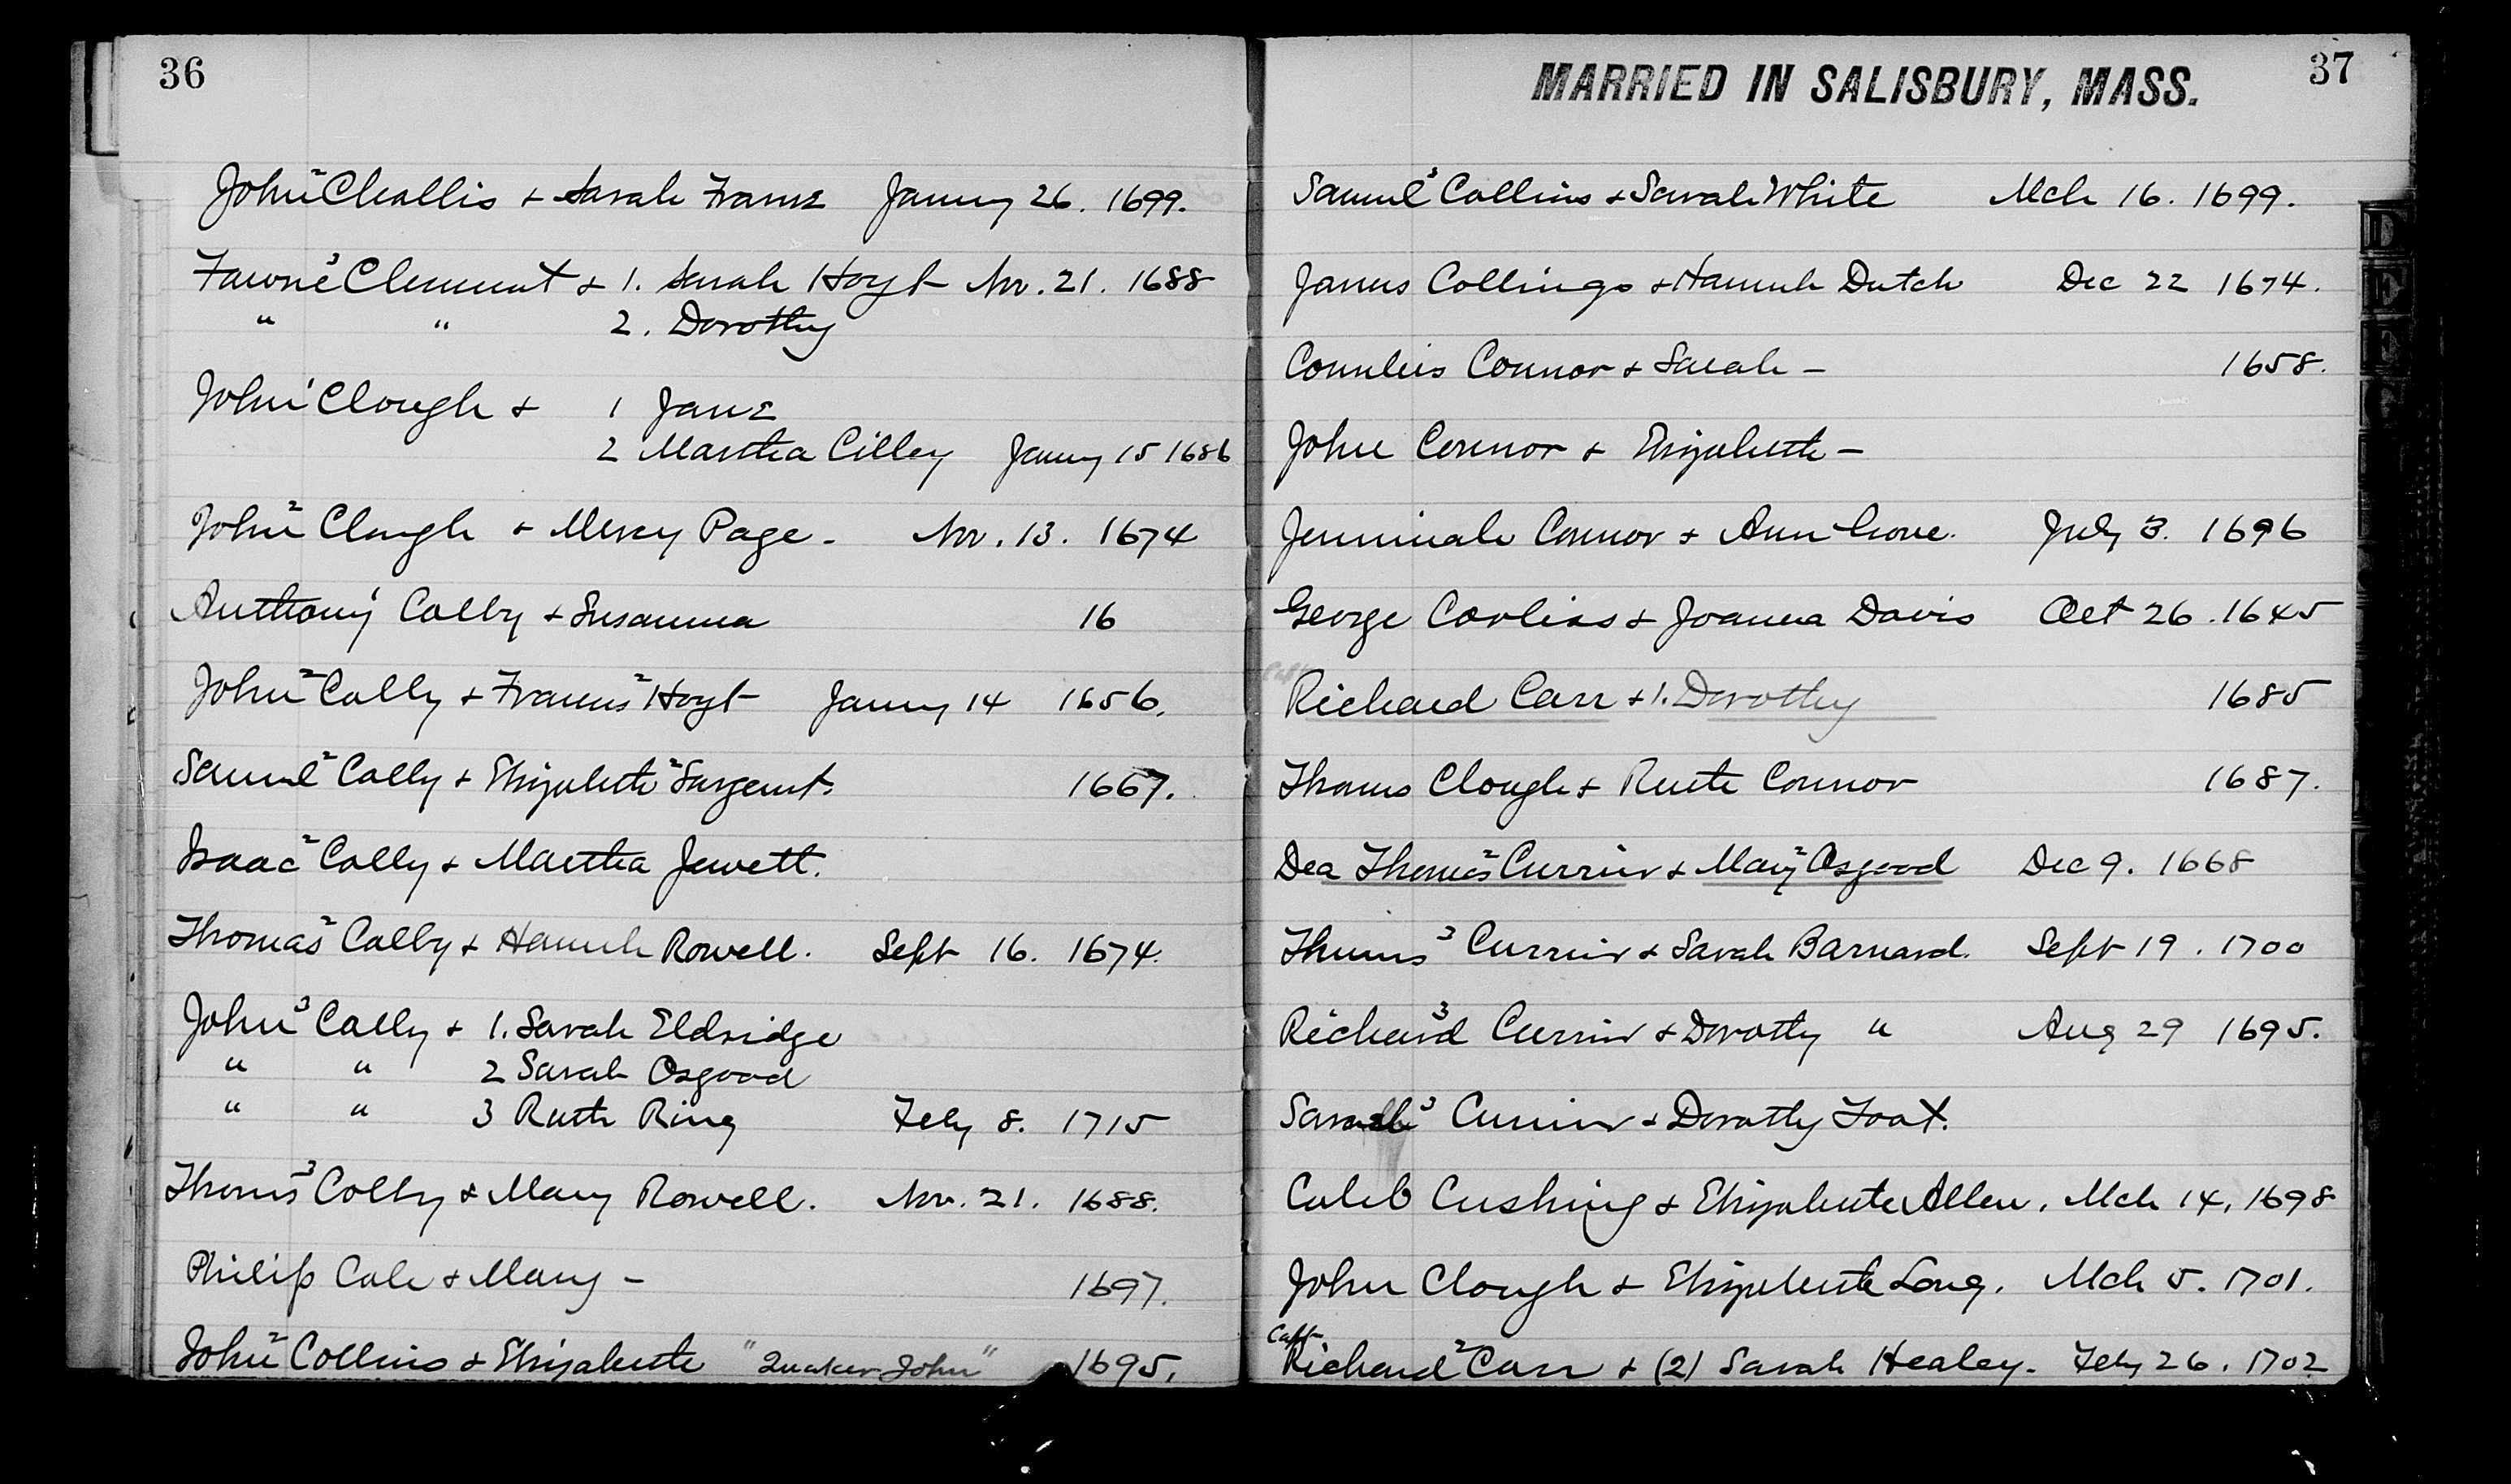 36
John² Challis + Sarah Frame Jany 26. 1699.
Fawne³ Clement + 1. Sarah Hoyt Nov. 21. 1688
" " 2. Dorothy
John¹ Clough + 1 Jane
2 Martha Cilley Jany 15 1686
John² Clough + Mercy Page - Nov. 13. 1674
Anthony¹ Colby + Susanna 16
John² Colby + Frances² Hoyt Jany 14 1656.
Samuel² Colby + Elizabeth² Sargent. 1667.
Isaac² Colby + Martha Jewett.
Thomas² Colby + Hannah Rowell. Sept 16. 1674.
John³ Colby + 1. Sarah Eldridge
" " 2 Sarah Osgood
" " 3 Ruth Ring Feby 8. 1715
Thomas³ Colby + Mary Rowell. Nov. 21. 1688.
Philip Cole + Mary - 1697.
John² Collins + Elizabeth "Quaker John" 1695.
MARRIED IN SALISBURY, MASS. 37
Samuel³ Collins + Sarah White Mch 16. 1699.
James Collings + Hannah Dutch Dec 22 1674.
Cornelius Connor + Sarah - 1658.
John Connor + Elizabeth -
Jerimiah Connor + Ann Gove. July 3. 1696
George Corliss + Joanna Davis Oct 26. 1645
Richard Carr + 1. Dorothy 1685
Thomas Clough + Ruth Connor 1687.
Dea Thomas² Currier + Mary² Osgood Dec 9. 1668
Thomas³ Currier + Sarah Barnard. Sept 19. 1700
Richard³ Currier + Dorothy " Aug 29 1695.
³ Currier + Dorothy Foot.
Caleb Cushing + Elizabeth Allen. Mch 14, 1698
John Clough + Elizabeth Long. Mch 5. 1701.
Capt
Richard² Carr + (2) Sarah Healey - Feby 26. 1702